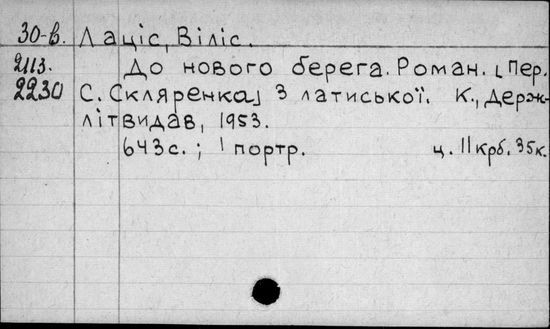 30-в. Лаціс, Віліс.
2113. До нового берега. Роман. [Пер.
2230 С. Скляренка] З латиської. К., Держ-
літвидав, 1953.
643с. ; 1 портр. ц. 11 крб. 35к.